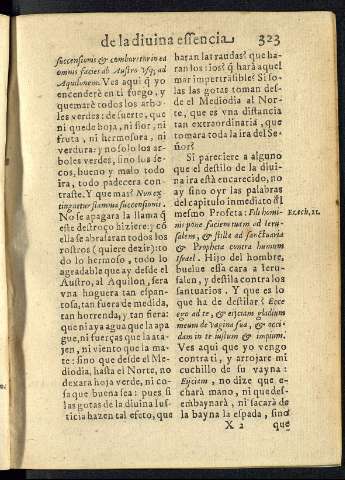 de la diuina essencia 323
succensionis & comburetur in ea
omnis facies ab Austro vsq; ad
Aquilonem. Ves aqui q̃ yo
encenderè en ti fuego, y
quemarè todos los arbo
les verdes: de suerte, que
ni quede hoja, ni flor, ni
fruta, ni hermosura, ni
verdura: y no solo los ar
boles verdes, sino los se-
cos, bueno y malo todo
ira, todo padecera con-
traste. Y que mas? Non ex-
tinguetur flamma succensionis.
No se apagara la llama q̃
este destroço hiziere: y cõ
ella se abralaran todos los
rostros (quiere dezir) to
do lo hermoso, todo lo
agradable que ay desde el
Austro, al Aquilon, sera
vna hoguera tan espan-
tosa, tan fuera de medida,
tan horrenda, y tan fiera:
que ni aya agua que la apa
gue, ni fuerças que la ata-
jen, ni viento que la ma-
te: sino que desde el Me-
diodia, hasta el Norte, no
dexara hoja verde, ni co
sa que buena sea: pues si
las gotas de la diuina Iu-
sticia hazen tal efeto, que
haran las raudas? que ha-
ran los rios? q̃ harà aquel
mar impertrãsible? Si so-
las las gotas toman des-
de el Mediodia al Nor-
te, que es vna distancia
tan extraordinaria, que
tomara toda la ira del Se-
ñor?
Si pareciere a alguno
que el destilo de la diui-
na ira està encarecido, no
ay sino oyr las palabras
del capitulo inmediato al
mesmo Profeta: Fili homi- Ezech, 21.
ni pone faciem tuam ad Ieru-
salem, & stilla ad sanctuaria
& Propheta contra humum
Israel. Hijo del hombre,
buelue essa cara a Ieru-
salen, y destila contra los
santuarios. Y que es lo
que ha de destilar? Ecce
ego ad te, & eijciam gladium
meum de vagina sua, & occi-
dam in te iustum & impium.
Ves aqui que yo vengo
contra ti, y arrojarè mi
cuchillo de su vayna:
Eijciem, no dize que e-
charà mano, ni que des-
embaynarà, ni sacarà de
la bayna la espada, sino
X 2 que